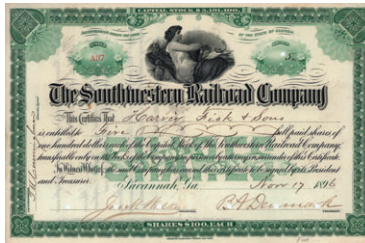 CAPITAL STOCK $5,191,100.
The Southwestern Railroad Company
This Certifies That Harvey Fisk & Sons
is entitled to Five full paid shares of
one hundred dollars each of the Capital Stock of the Southwestern Railroad Company;
transferable only on the Books of the Company in person or by attorney on surrender of this Certificate.
In Witness Whereof, the said Company has caused this certificate to be signed by its President
and Treasurer. Savannah, Ga. Nov 17 1896
SHARES $100 EACH